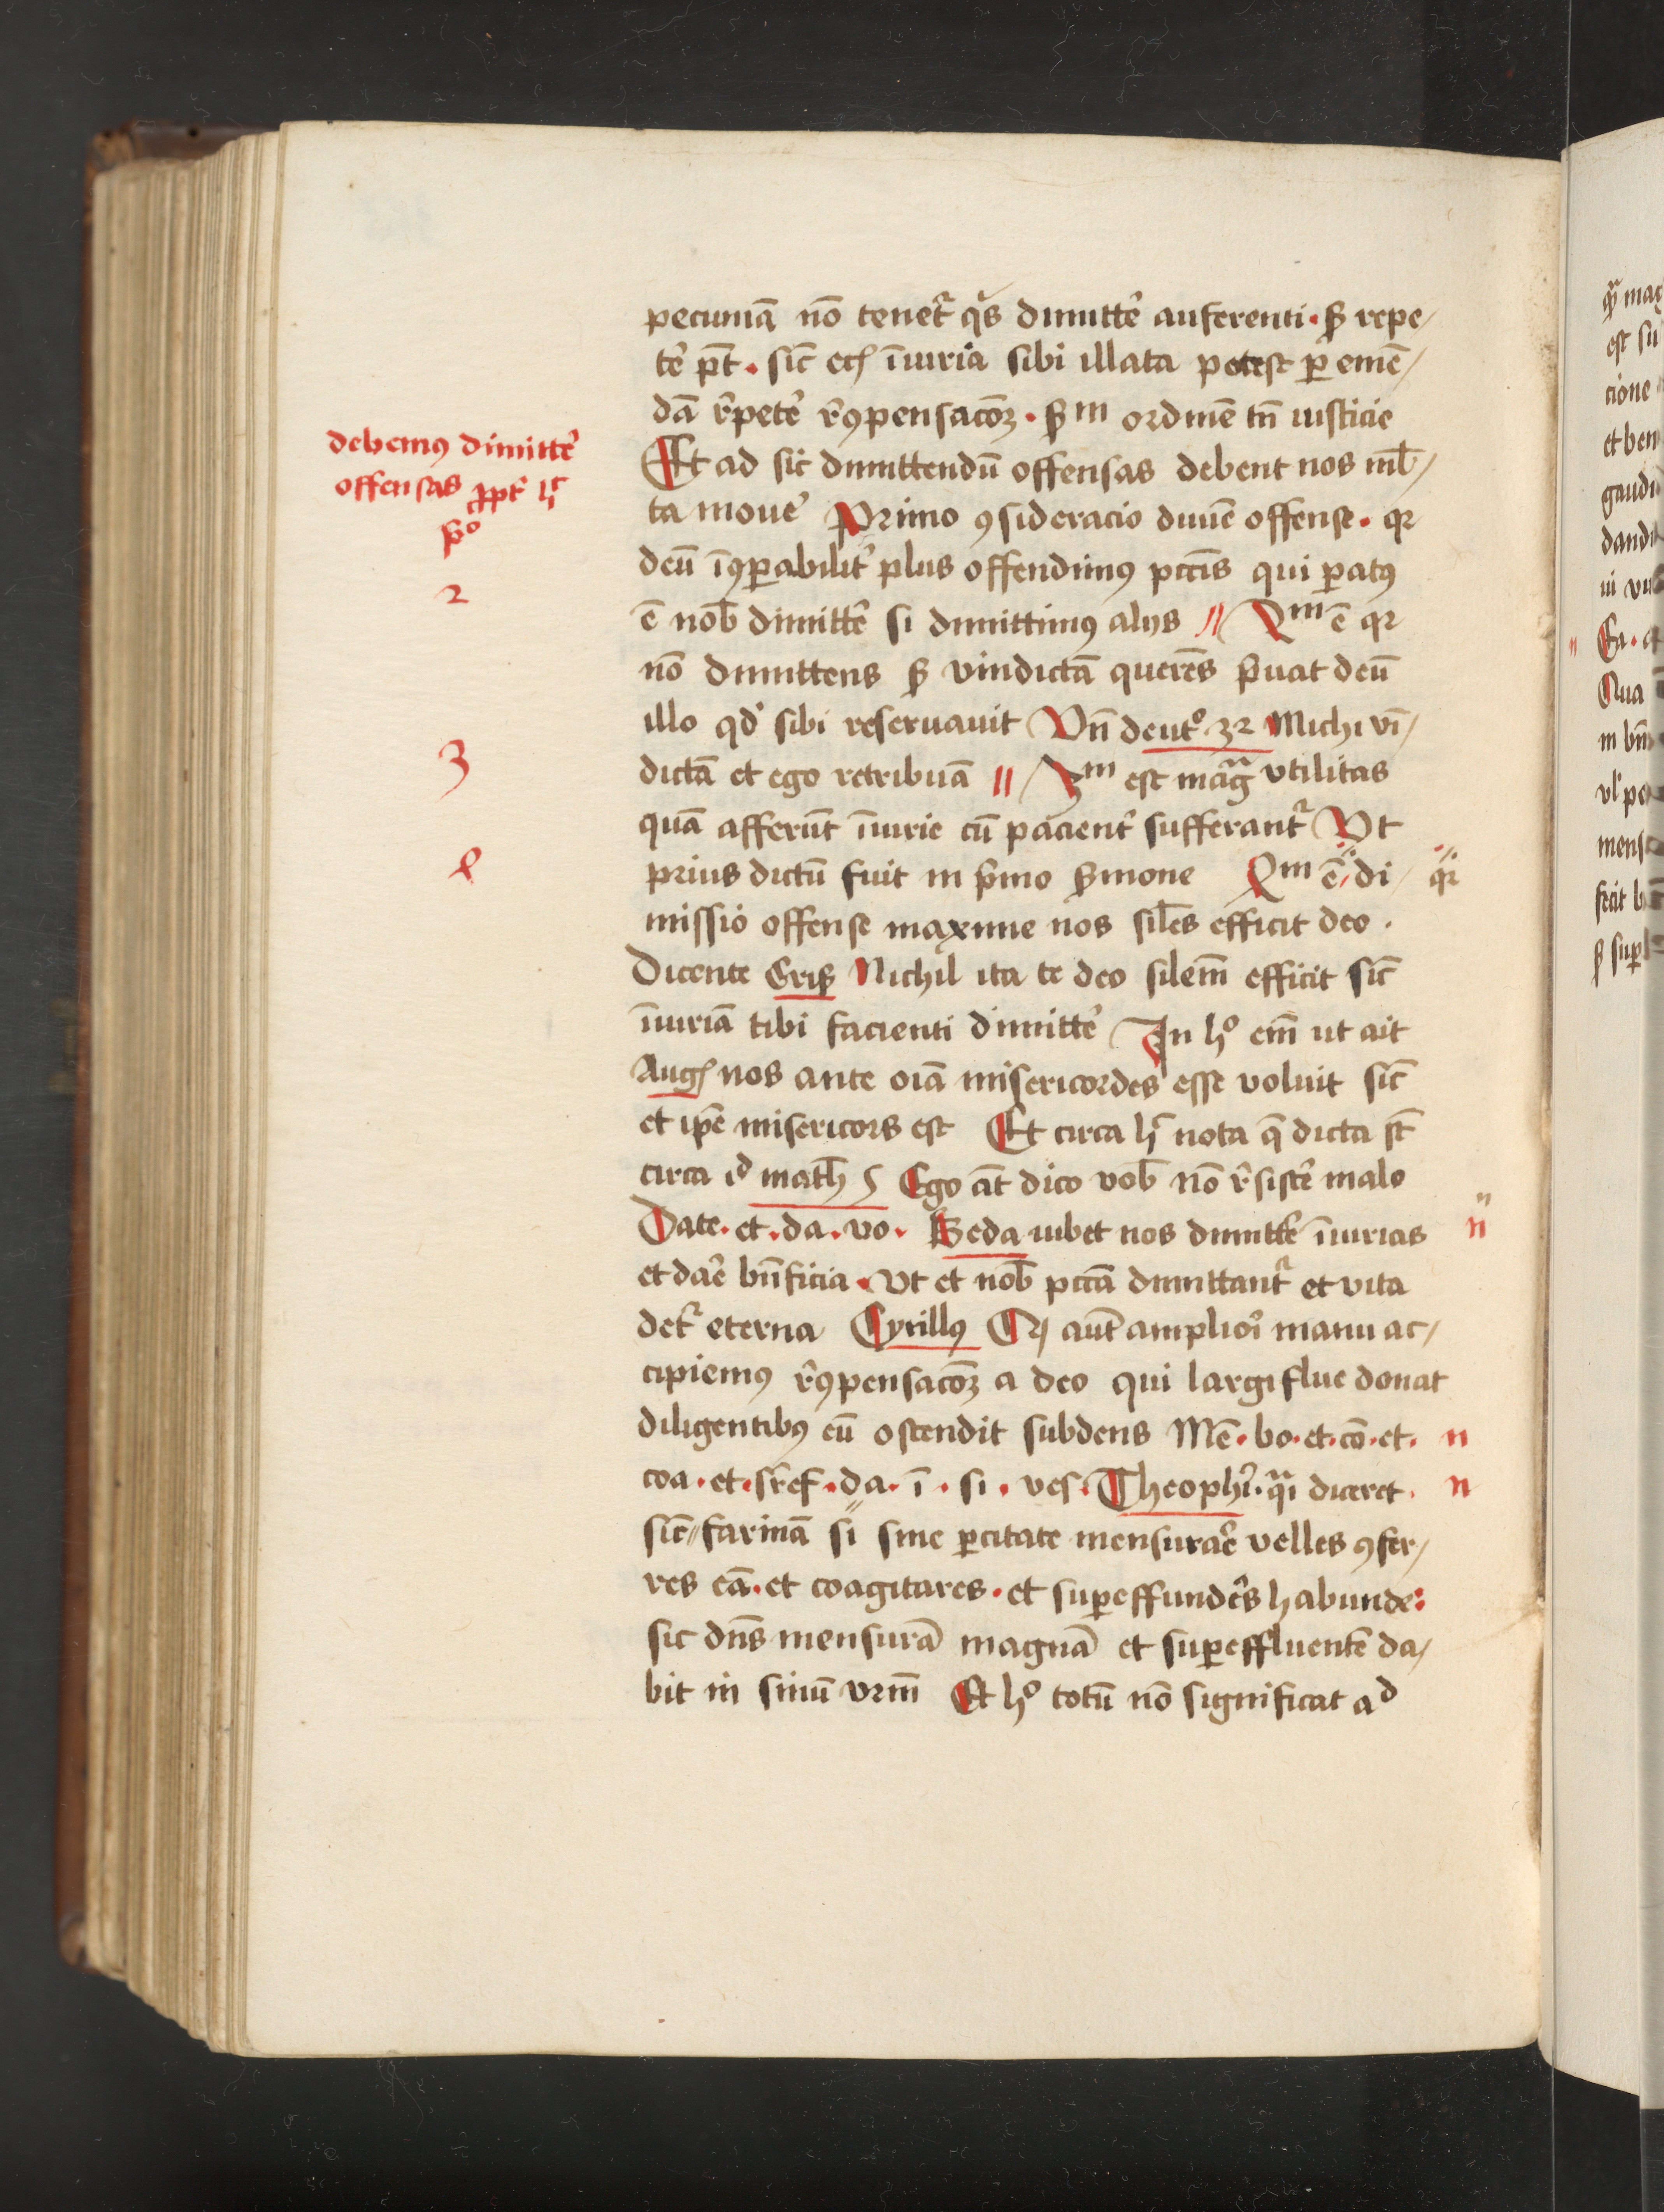 pecuniā nō tenet᷑ qͥs dimitte᷑ auferenti · sꝫ repe/
te᷑ pt̄ · sic̄ ecꝫ īiuria sibi illata potest ꝑ emē/
dā r̄pete᷑ r̄ꝯpensacōꝫ · sꝫᵐ ordinē tn̄ iusticie
Et ad sic dimittendū offensas debent nos ml̄/
ta moue᷑ Primo ꝯsideracio diuīe offense · qꝛ
deū īꝯꝑabilit᷑ plus offendimꝯ pctīs qui ꝑatꝯ
ē nob̄ dimitte᷑ si dimittimꝯ alijs // 2ᵐ ē qꝛ
nō dimittens sꝫ vindictā querēs p̄uat deū
illo qd̛ sibi reseruauit Vn̄ deutᵒ 32 Michi vī/
dictā et ego retribuā // 3ᵐ est magͣ vtilitas
quā afferūt īiurie cū pacient᷑ sufferant᷑ Vt
prius dictū fuit in p̄mo s̄mone 4ᵐ ē // di/ qꝛ
missio offense maxime nos sil̄es efficit deo ·
Dicente Cris̄ Nichil ita te deo silem̄ efficit sic̄
īiuriā tibi facienti dimitte᷑ In hᵒ em̄ ut ait
Augꝫ nos ante oīa misericordes esse voluit sic̄
et ip̄e misericors est Et circa hͨ nota q̄ dicta st̄
circa id math̄ 5 Ego āt dico vob̄ nō r̄siste᷑ malo
Date · et · da · vo · Beda iubet nos dimitte᷑ īiurias n̄
et dae᷑ bn̄ficia · Vt et nob̄ pctā dimittant᷑ et vita
det᷑ eterna Cyrillꝯ Qꝫ aūt ampliori manu ac/
cipiemꝯ r̄ꝯpensacōꝫ a deo qui largiflue donat
diligentibꝯ eū ostendit subdens Mē · bo · et · cō · et · n
coa · et · sr̄ef · da · ī · si · ves · Theophi᷑ · qͣi diceret · n
sic̄ // farinā si sine ꝑcitate mensurae᷑ velles ꝯfer/
res eā · et coagitares · et suꝑeffunde᷑s habunde :
sic dn̄s mensurā magnā et suꝑeffluentē da/
bit in sinū vrm̄ Et hᵒ totū nō significat ad
debemꝯ dimitte᷑
offensas ꝓpt᷑ hͨ
pᵒ
2
3
4